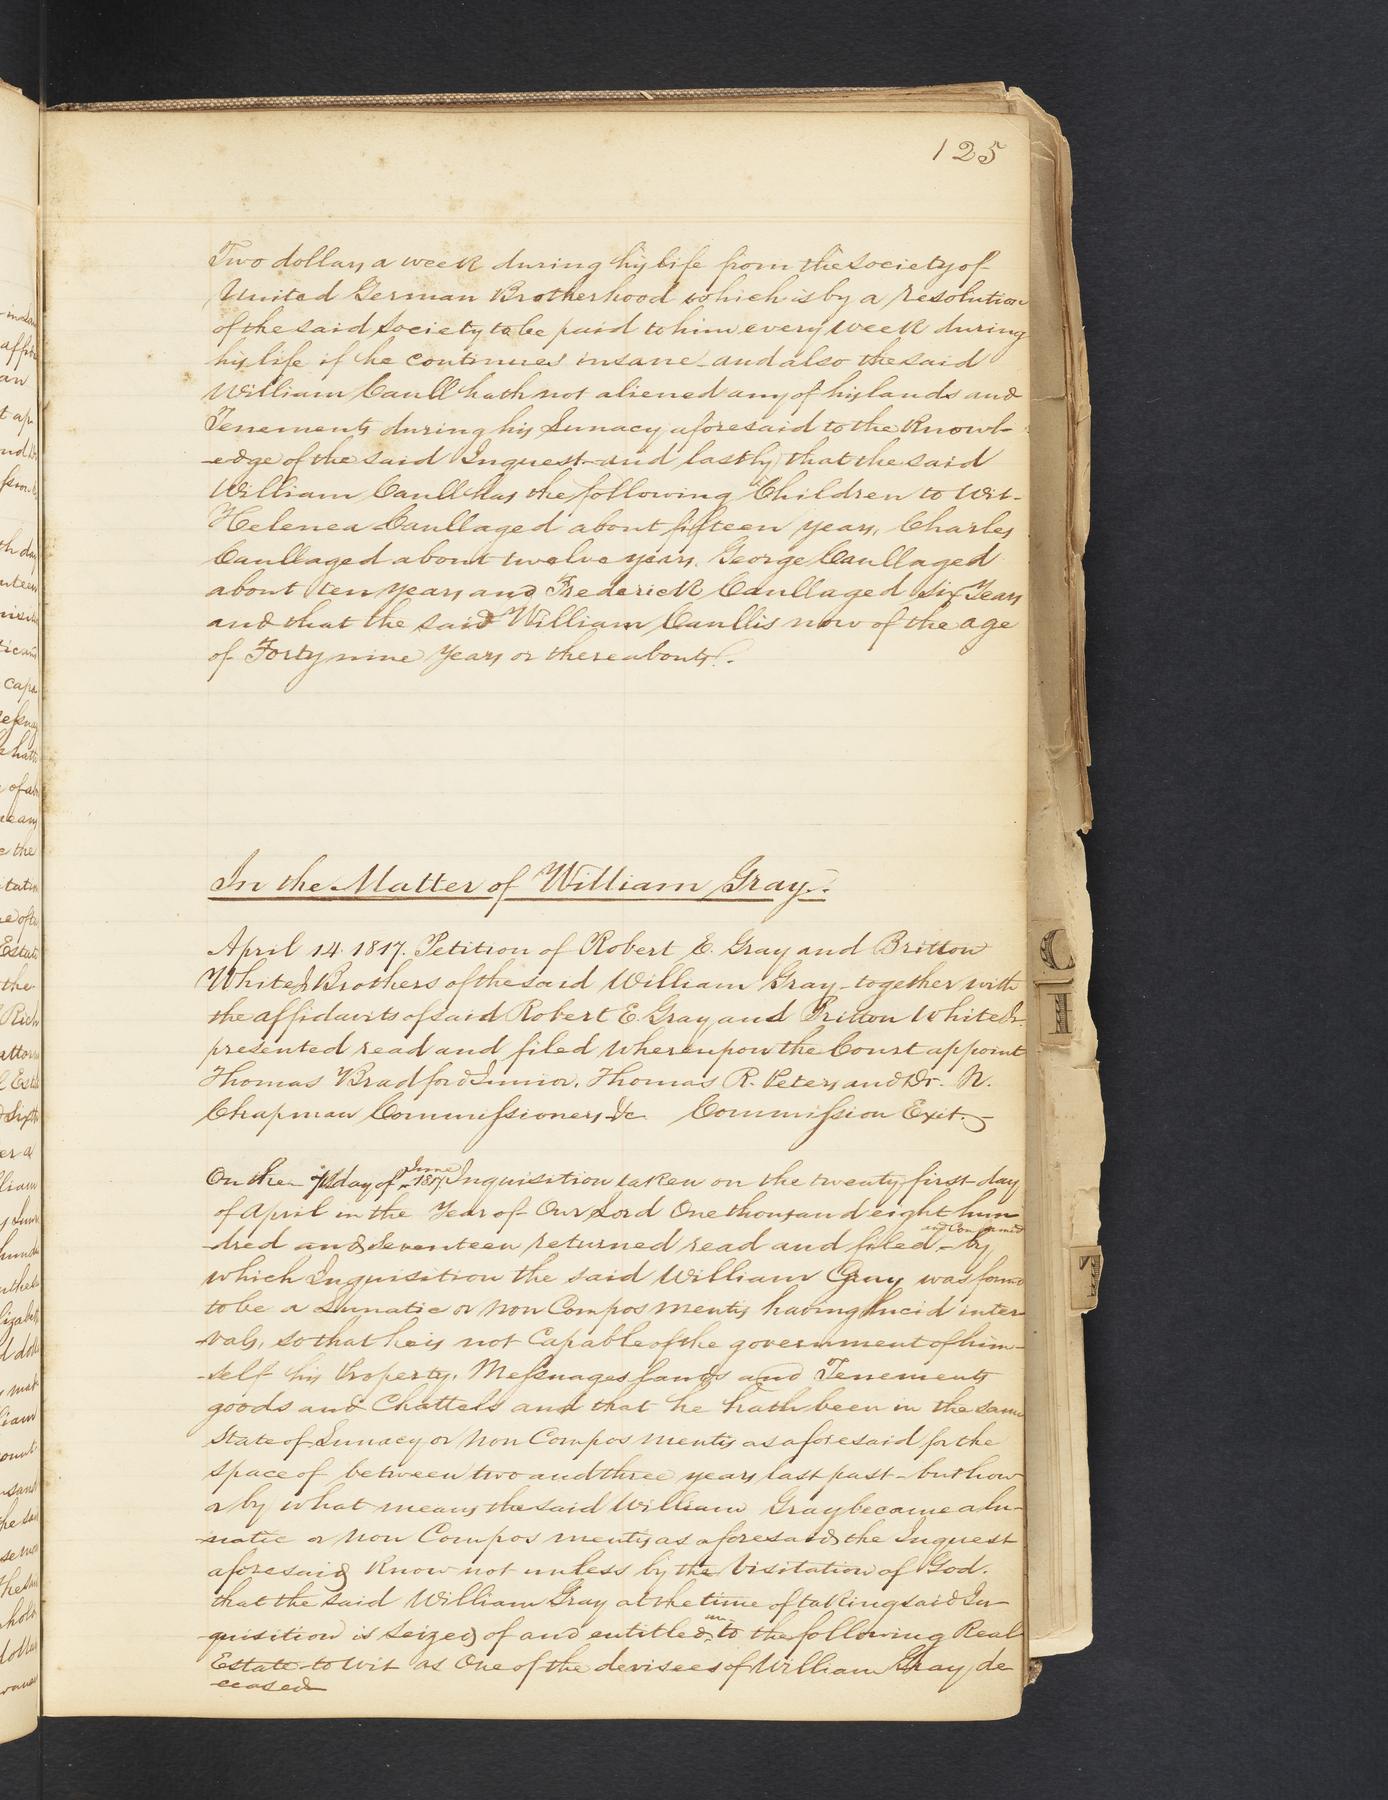 125
Two dollars a week during his life from the Society of
United German Brotherhood which is by a resolution
of the said Society to be paid to him every week during
his life if he continues insane and also the said
William Caull hath not aliened any of his lands and
Tenements during his Lunacy aforesaid to the Knowl-
-edge of the said Inquest and lastly that the said
William Caull has the following Children to Wit-
Helenea Caull aged about fifteen years, Charles
Caull aged about twelve years, George Caull aged
about ten years and Frederick Caull aged Six Years
and that the said William Caull is now of the age
of Forty nine Years or thereabouts.
In the Matter of William Gray.
April 14 1817. Petition of Robert E. Gray and Britton
White Jr Brothers of the said William Gray - together with
the affidavits of said Robert E. Gray and Britton White Jr.
presented read and filed whereupon the Court appoint
Thomas Bradford Junior, Thomas R. Peters and Dr. N.
Chapman Commissioners &c Commission Exit.
On the day of June 1817 Inquisition taken on the twenty first day
of April in the Year of Our Lord One thousand eight hun
-dred and Seventeen returned read and filed and Confirmed - by
which Inquisition the said William Gray was found
to be a Lunatic or non Compos mentis having lucid inter
-vals, so that he is not Capable of the government of him-
-self his Property, Messuages lands and Tenements
goods and Chattels and that he hath been in the same
State of Lunacy or Non Compos mentis as aforesaid for the
space of between two and three years last past - but how
or by what means the said William Gray became a lu-
-natic or Non Compos mentis as aforesaid the Inquest
aforesaid Know not unless by the Visitation of God.
that the said William Gray at the time of taking said In-
quisition is Seized of and entitled to the following Real
Estate to wit as One of the devisees of William Gray de
ceased
C
I
T